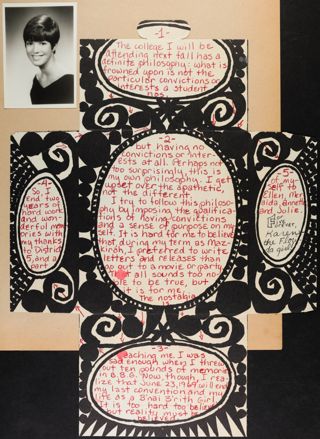 -1-
The college I will be
attending next fall has a
definite philosophy: what is
frowned upon is not the
particular convictions or
interests a student
has
-2-
but having no
convictions or inter-
ests at all. Perhaps not
too surprisingly, this is
my own philosophy. I get
upset over the apathetic,
not the different.
I try to follow this philoso-
phy by imposing the qualifica-
tions of having convictions
and a sense of purpose on my-
self. It is hard for me to believe
that during my term as Maz-
kirah, I preferred to write
letters and releases than
go out to a movie or party.
That all sounds too no-
ble to be true, but
it is for me.
The nostalgia is
-3-
reaching me. I was
sad enough when I threw
out ten pounds of memories
in B.B.G. Now, though, I rea-
lize that June 23, 1969 will end
my last convention and my
life as a B'nai B'rith Girl.
It is too hard to believe,
but reality must be
believed.
-4-
So, I
end two
years of
hard work
and won-
derful mem-
ories with
my thanks
to District
5, and a
part
-5-
of my
self to
Ellen, Mer-
Aida, Annette,
and Julie.
Forever,
Karen
the Flor-
ida girl